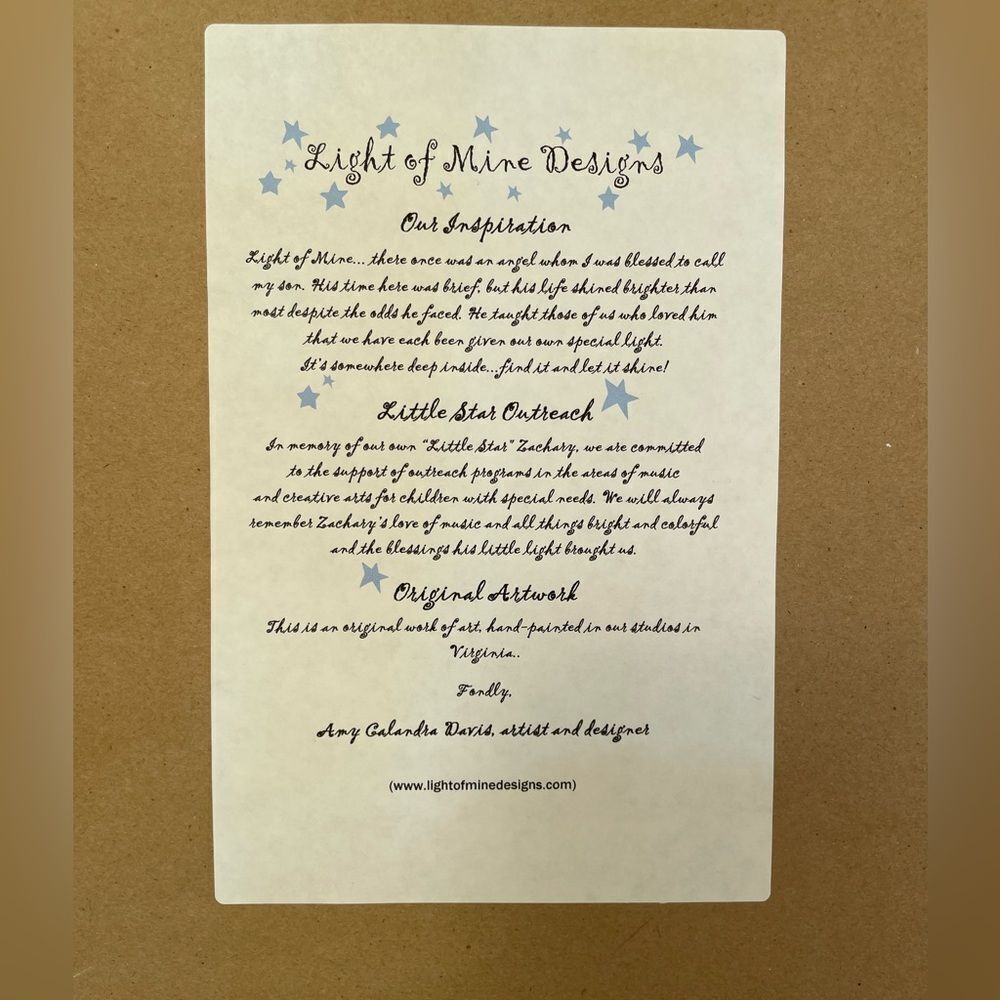 Light of Mine Designs
Our Inspiration
Light of Mine... there once was an angel whom I was blessed to call
my son. His time here was brief, but his life shined brighter than
most despite the odds he faced. He taught those of us who loved him
that we have each been given our own special light.
It's somewhere deep inside...find it and let it shine!
Little Star Outreach
In memory of our own "Little Star" Zachary, we are committed
to the support of outreach programs in the areas of music
and creative arts for children with special needs. We will always
remember Zachary's love of music and all things bright and colorful
and the blessings his little light brought us.
Original Artwork
This is an original work of art, hand-painted in our studios in
Virginia..
Fondly,
Amy Calandra Davis, artist and designer
(www.lightofminedesigns.com)